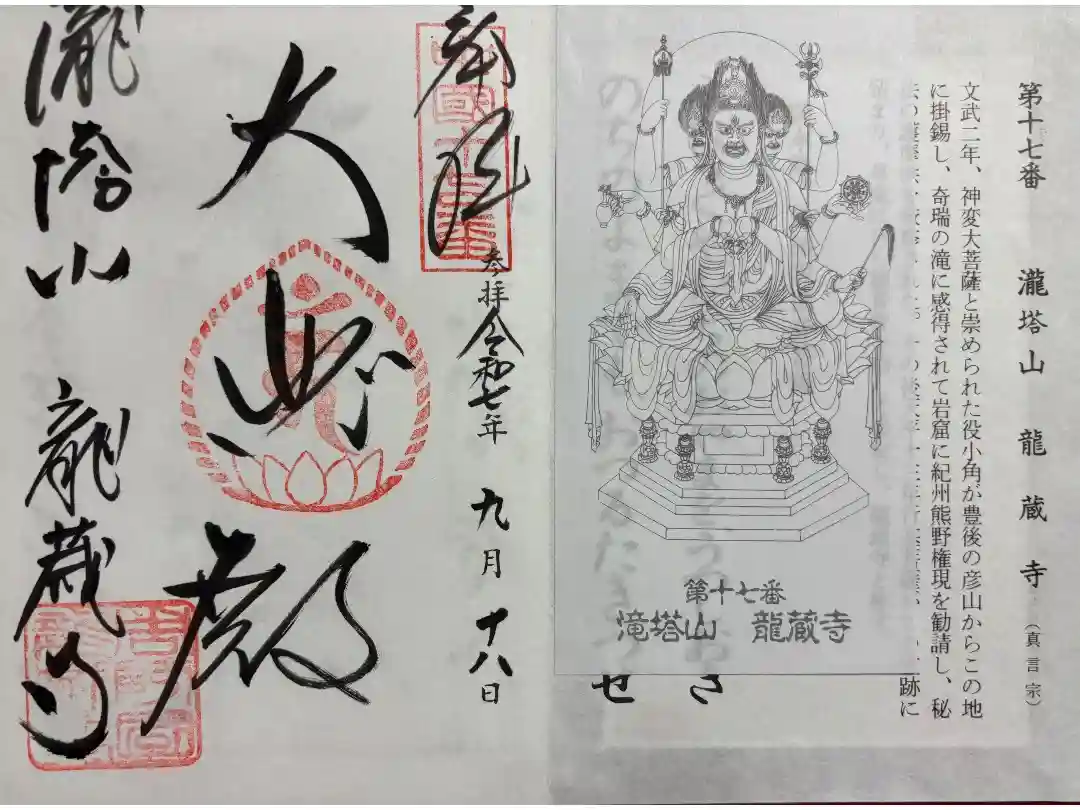 第十七番 瀧塔山 龍蔵寺（真言宗）
文武二年、神変大菩薩と崇められた役小角が豊後の彦山からこの地
に掛錫し、奇瑞の滝に感得されて岩窟に紀州熊野権現を勧請し、秘
跡に
さ
せ
第十七番
滝塔山 龍蔵寺
奉拝
参拝令和七年 九月 十八日
大悲殿
瀧塔山 龍蔵寺